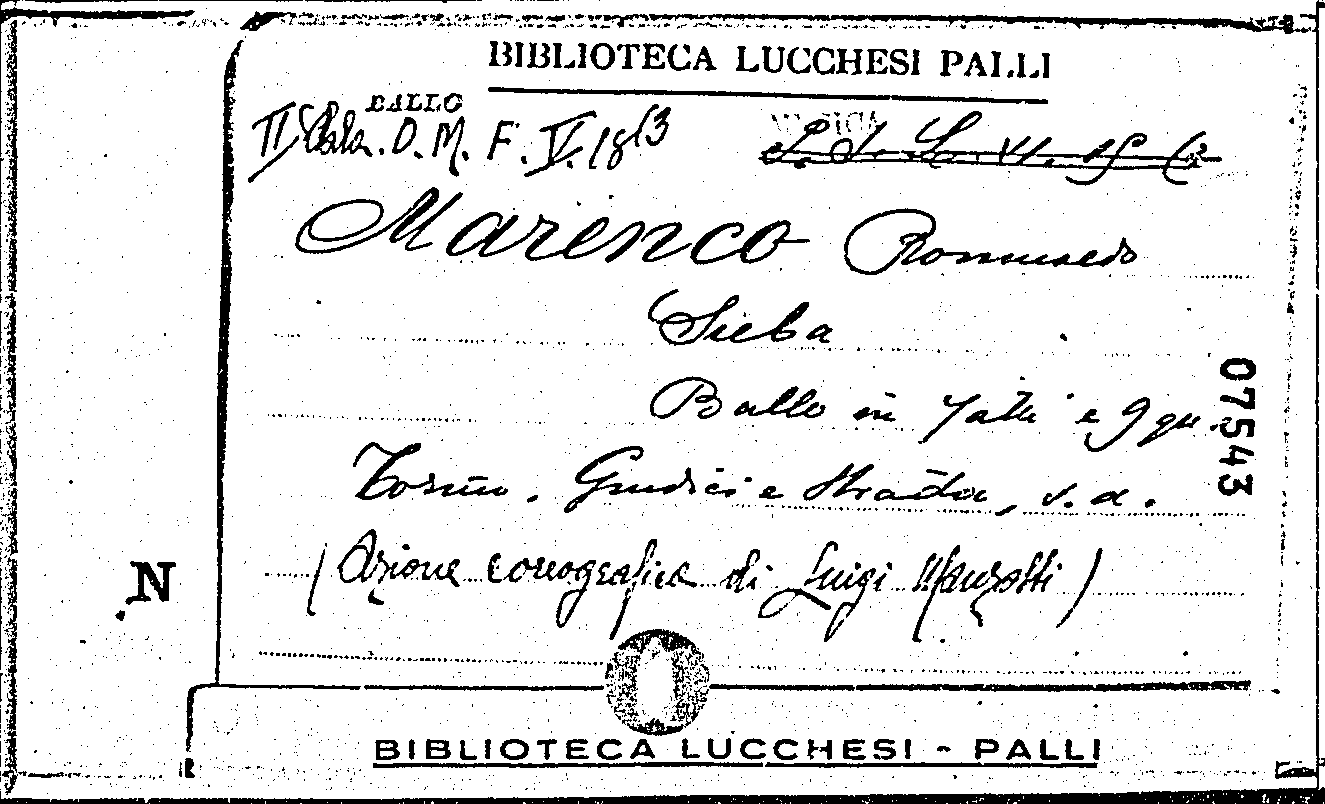 BIBLIOTECA LUCCHESI PALLI
BALLO
II Sala. D. M. F. V. 18(3
MUSICA
Marenco Romualdo
Sieba
Ballo in 7 atti e 9 qu.
07543
Torino. Giudici e Strada, s. a.
(Azione coreografica di Luigi Manzotti)
N
BIBLIOTECA LUCCHESI - PALLI